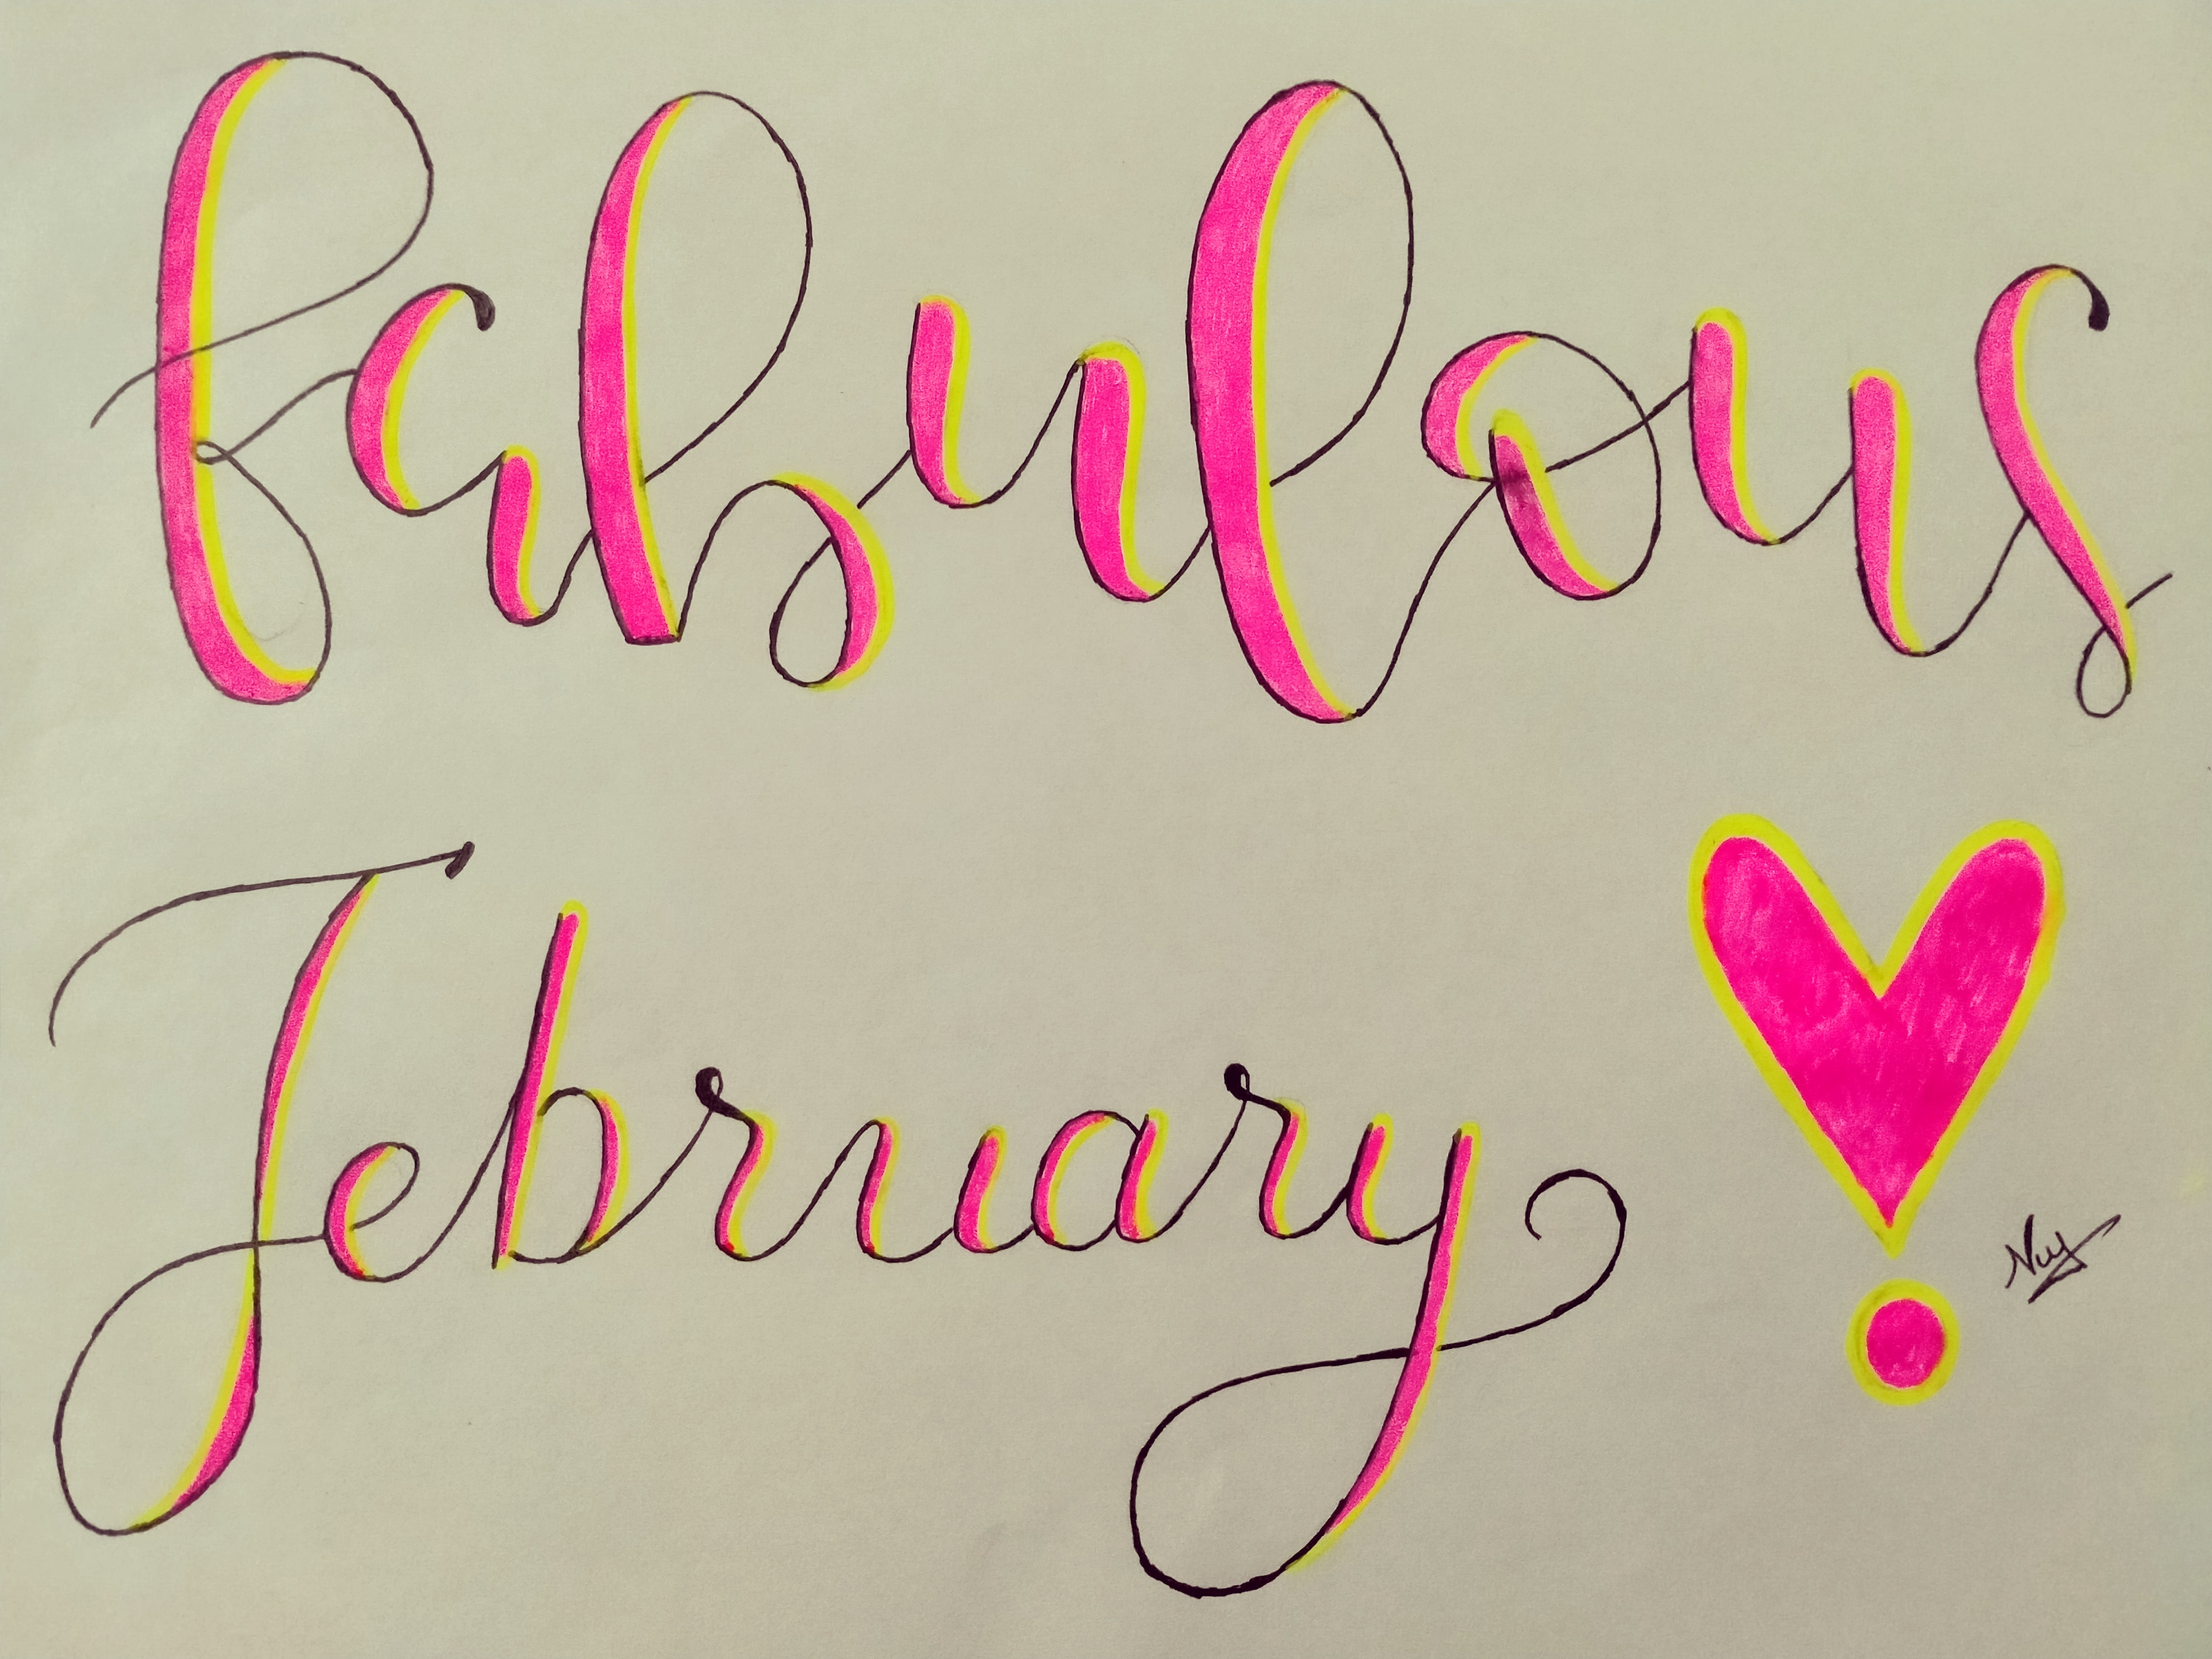 fabulous
February